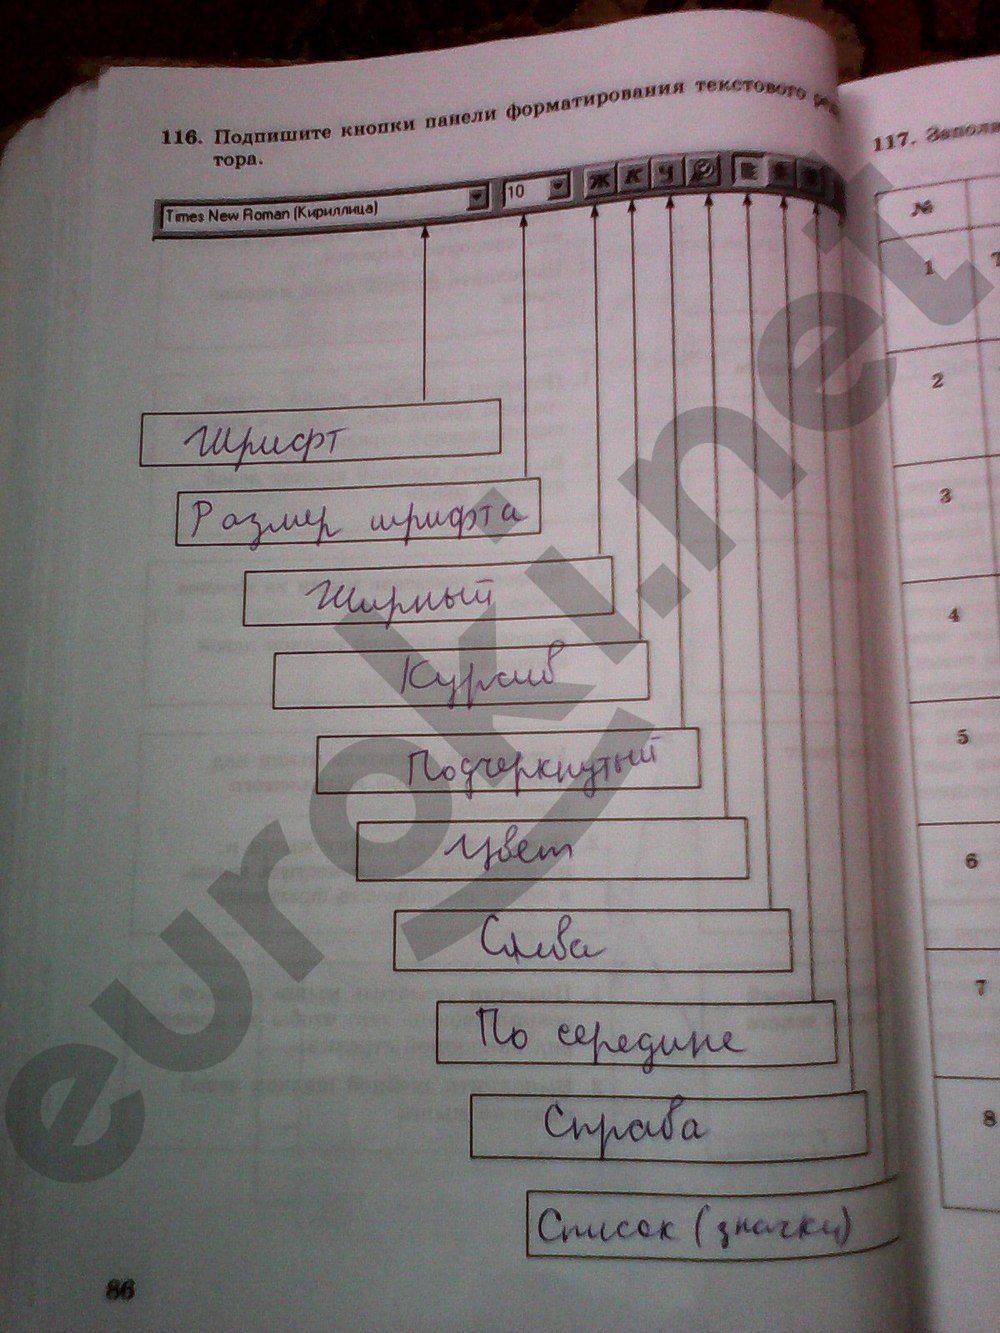 116. Подпишите кнопки панели форматирования текстового
тора.
117.
Times New Roman (Кириллица) 10 Ж К Ч
№
1
2
3
4
5
6
7
8
Шрифт
Размер шрифта
Жирный
Курсив
Подчеркнутый
Цвет
Слева
По середине
Справа
Список (значки)
86
euroki.net